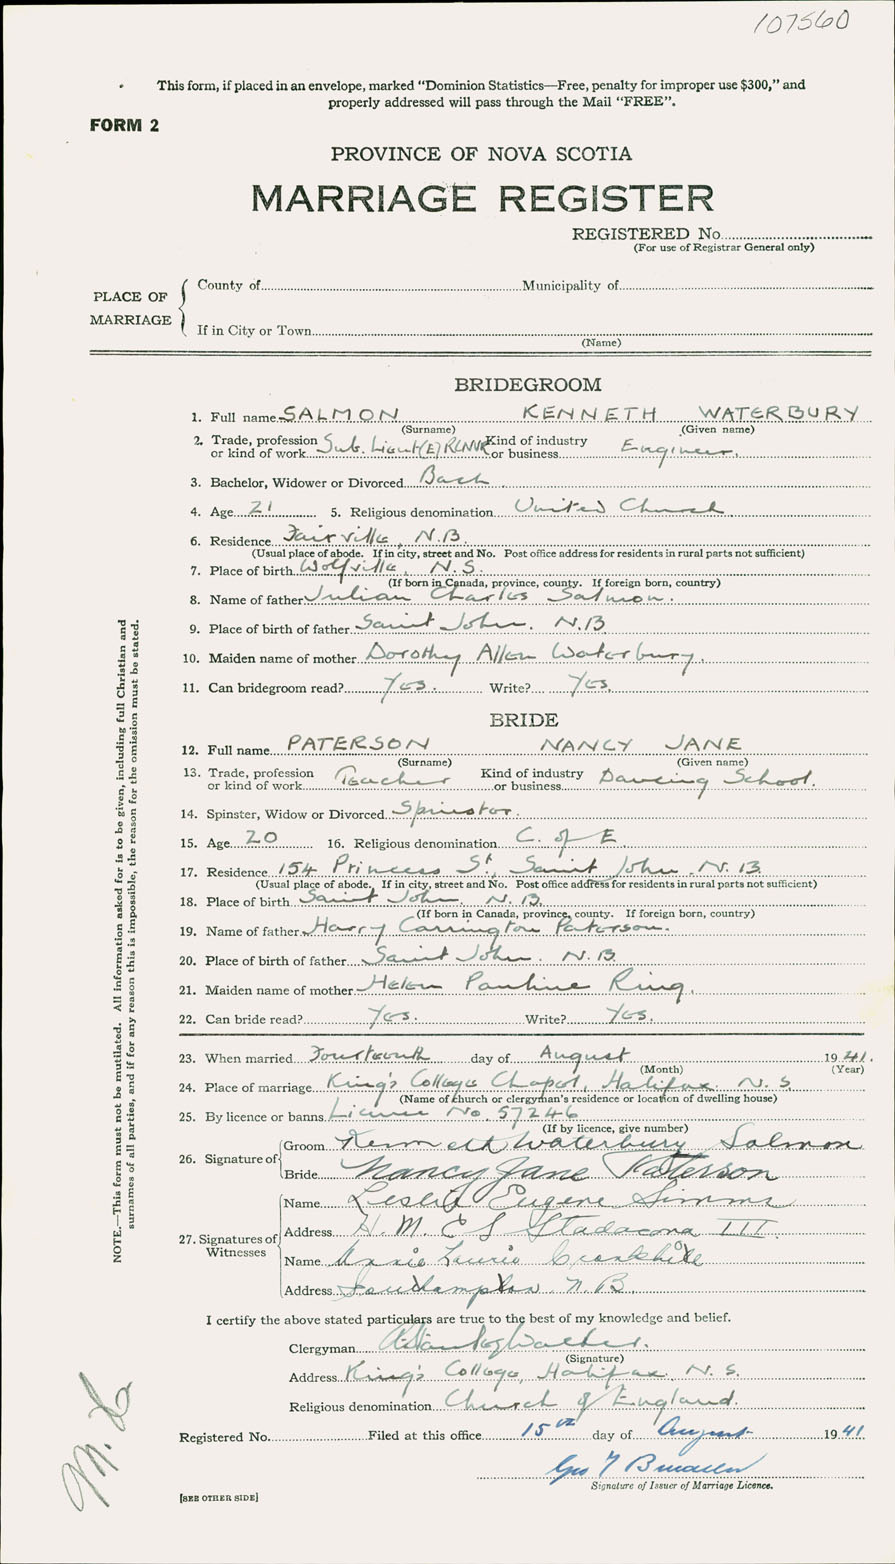 107560
This form, if placed in an envelope, marked "Dominion Statistics—Free, penalty for improper use $300," and
properly addressed will pass through the Mail "FREE".
FORM 2
PROVINCE OF NOVA SCOTIA
MARRIAGE REGISTER
REGISTERED No.
(For use of Registrar General only)
PLACE OF MARRIAGE
County of Municipality of
If in City or Town
(Name)
BRIDEGROOM
1. Full name SALMON KENNETH WATERBURY
(Surname) (Given name)
2. Trade, profession or kind of work Sub. Lieut (E) RCNVR Kind of industry or business Engineer.
3. Bachelor, Widower or Divorced Bach
4. Age 21 5. Religious denomination United Church
6. Residence Fairville, N.B.
(Usual place of abode. If in city, street and No. Post office address for residents in rural parts not sufficient)
7. Place of birth Wolfville, N.S.
(If born in Canada, province, county. If foreign born, country)
8. Name of father Julian Charles Salmon.
9. Place of birth of father Saint John. N.B
10. Maiden name of mother Dorothy Allen Waterbury.
11. Can bridegroom read? Yes. Write? Yes.
BRIDE
12. Full name PATERSON NANCY JANE
(Surname) (Given name)
13. Trade, profession or kind of work Teacher Kind of industry or business Dancing School.
14. Spinster, Widow or Divorced Spinster.
15. Age 20 16. Religious denomination C. of E
17. Residence 154 Princess St, Saint John. N. B.
(Usual place of abode. If in city, street and No. Post office address for residents in rural parts not sufficient)
18. Place of birth Saint John. N. B.
(If born in Canada, province, county. If foreign born, country)
19. Name of father Harry Carrington Paterson.
20. Place of birth of father Saint John. N. B.
21. Maiden name of mother Helen Pauline Ring.
22. Can bride read? Yes. Write? Yes.
23. When married Fourteenth day of August 1941.
(Month) (Year)
24. Place of marriage King's College Chapel, Halifax. N. S.
(Name of church or clergyman's residence or location of dwelling house)
25. By licence or banns Licence No. 57246
(If by licence, give number)
26. Signature of
Groom Kenneth Waterbury Salmon
Bride Nancy Jane Paterson
27. Signatures of Witnesses
Name Leslie Eugene Simms
Address H. M. C S Stadacona III.
Name Annie Laurie
Address Southampton N. B.
I certify the above stated particulars are true to the best of my knowledge and belief.
Clergyman Walker.
(Signature)
Address King's College, Halifax. N. S.
Religious denomination Church of England.
Registered No. Filed at this office 15th day of August 1941
Geo
Signature of Issuer of Marriage Licence.
[SEE OTHER SIDE]
NOTE.—This form must not be mutilated. All information asked for is to be given, including full Christian and
surnames of all parties, and if for any reason this is impossible, the reason for the omission must be stated.